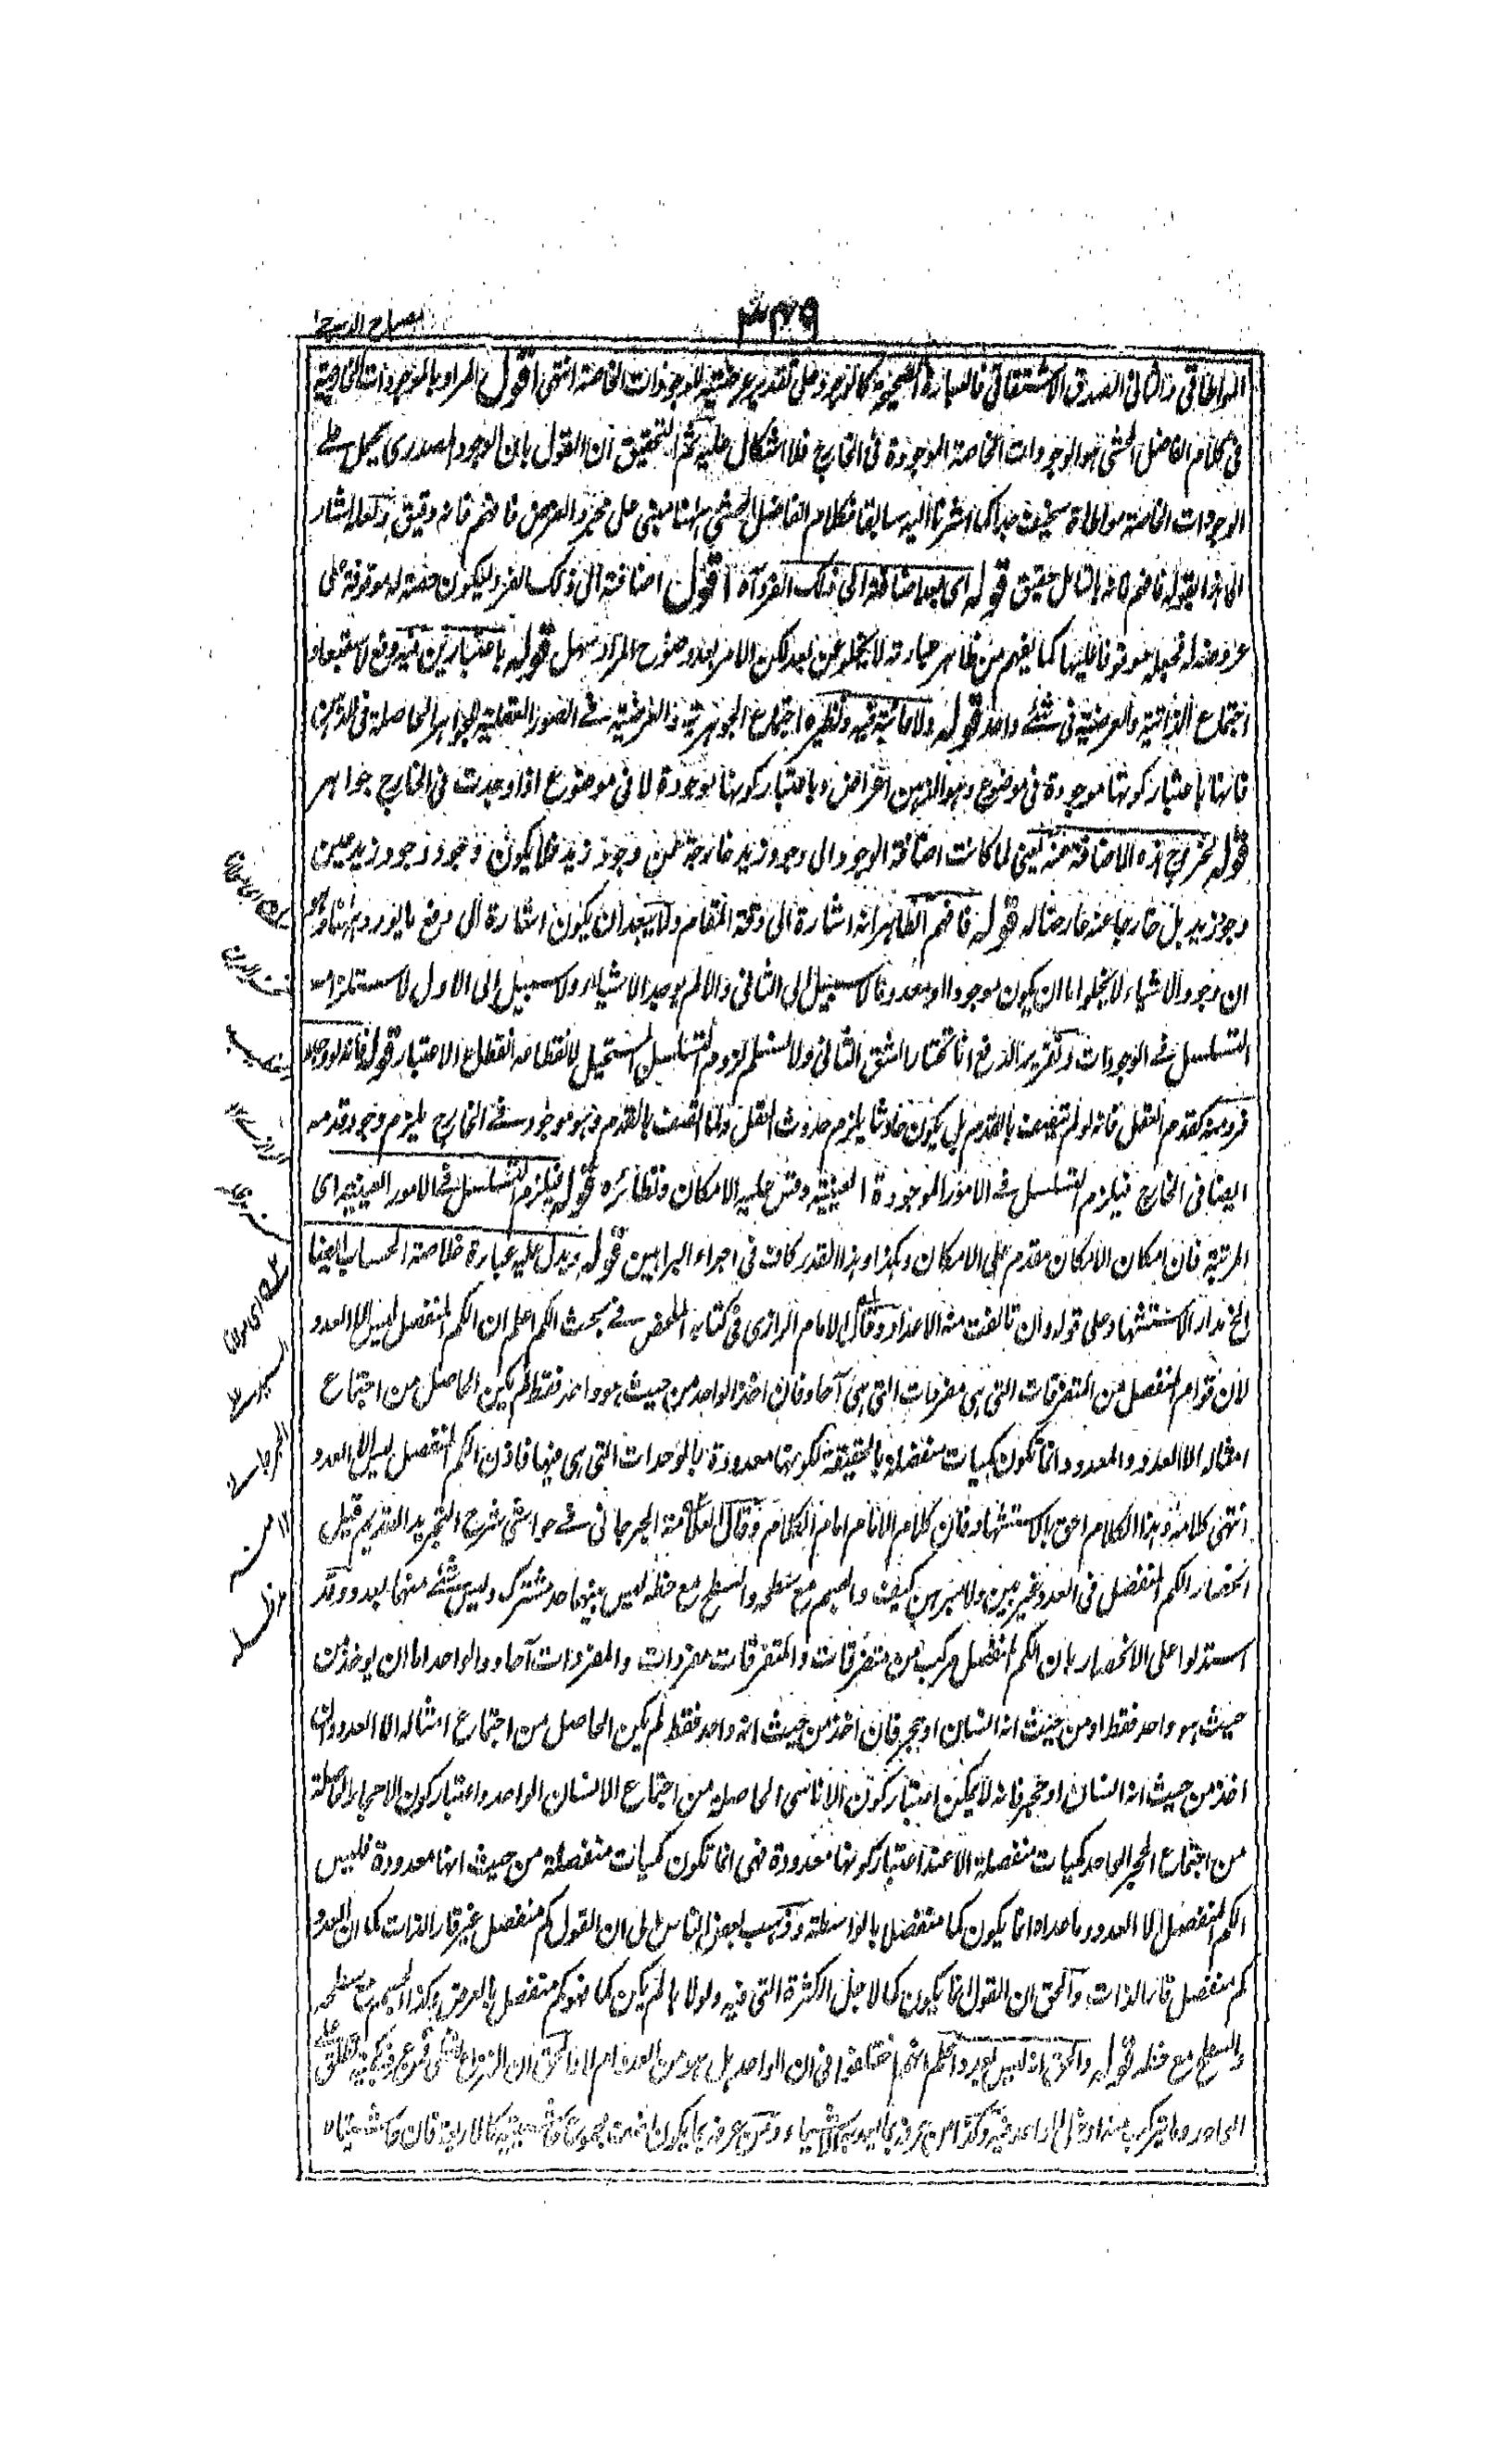 مصباح الدجى
المواطاتي والثاني الصدق الاشتقاقي فالعبارة الصحيحة كالوجود على تقدير عرضيته للوجودات الخاصة انتهى اقول المراد بالموجودات الخارجية
في كلام الفاضل المحشي هو الوجودات الخاصة الموجودة في الخارج فلا اشكال عليه ثم التحقيق ان القول بان الوجود المصدري يحمل على
الوجودات الخاصة مواطاة سخيف جدا كما اشرنا اليه سابقا فكلام الفاضل المحشي ههنا مبني على مجرد العرض فافهم فانه دقيق ولعله اشار
الى هذا بقوله فافهم فانه بالتامل حقيق قوله اي بعد اضافته الى ذلك الفرد آه اقول اضافته الى ذلك الفرد ليكون حصته له موقوفة على
عروضه له فجعله موقوفا عليها كما يفهم من ظاهر عبارته لا يخلو عن بعد لكن الامر بعد وضوح المراد سهل قوله باعتبارين فيه دفع لاستبعاد
اجتماع الذاتية والعرضية في شئ واحد قوله ولا مائبة فيه ونظيره اجتماع الجوهرية والعرضية في الصور العقلية للجواهر الحاصلة في الذهن
فانها باعتبار كونها موجودة في موضوع وهو الذهن اعراض وباعتبار كونها موجودة لا في موضوع اذا وجدت في الخارج جواهر
قوله لخروج هذه الاضافة عنه يعني لما كانت اضافة الوجود الى وجود زيد خارجة عن وجود زيد فلا يكون وجود وجود زيد عين
وجود زيد بل خارجا عنه عارضا له قوله فافهم الظاهر انه اشارة الى دقة المقام ولا يبعد ان يكون اشارة الى دفع ما يورد ههنا وهو
ان وجود الاشياء لا يخلو اما ان يكون موجودا او معدوما لا سبيل الى الثاني والا لم يوجد الاشياء ولا سبيل الى الاول لاستلزامه
التسلسل في الوجودات وتقرير الدفع انا نختار الشق الثاني ولا نسلم لزوم التسلسل المستحيل لانقطاعه بانقطاع الاعتبار قوله فانه لو وجد
فرد منه كقدم العقل فانه لو لم يتصف بالقدم بل يكون حادثا يلزم حدوث العقل ولما اتصف بالقدم وهو موجود في الخارج يلزم وجود قدمه
ايضا في الخارج فيلزم التسلسل في الامور الموجودة العينية وقس عليه الامكان ونظائره قوله فيلزم التسلسل في الامور العينية اي
المرتبة فان امكان الامكان مقدم على الامكان وهكذا وهذا القدر كاف في اجراء البراهين قوله ويدل عليه عبارة خلاصة الحساب ايضا
الخ مدار الاستشهاد على قوله وان تالفت منه الاعداد وقال الامام الرازي في كتابه الملخص في بحث الكم اعلم ان الكم المنفصل ليس الا العدد
لان قوام المنفصل من المتفرقات التي هي مفردات التي هي آحاد فان اخذ الواحد من حيث هو واحد فقط لم يكن الحاصل من اجتماع
امثاله الا العدد والمعدود انما تكون كميات منفصلة بالحقيقة لكونها معدودة بالوحدات التي هي فيها فاذن الكم المنفصل ليس الا العدد
انتهى كلامه وهذا الكلام احق بالاستشهاد فان كلام الامام امام الكلام وقال العلامة الجرجاني في حواشي شرح التجريد القديم قيل
انحصار الكم المنفصل في العدد غير بين ولا مبرهن كيف والجسم مع سطحه والسطح مع خطه ليس بينهما حد مشترك وليس شئ منهما بعدد وقد
استدلوا على الانحصار بان الكم المنفصل مركب من متفرقات والمتفرقات مفردات والمفردات آحاد والواحد اما ان يوخذ من
حيث هو واحد فقط او من حيث انه انسان او حجر فان اخذ من حيث انه واحد فقط لم يكن الحاصل من اجتماع امثاله الا العدد وان
اخذ من حيث انه انسان او حجر فانه لا يمكن اعتبار كون الاناسي الحاصلة من اجتماع الانسان الواحد واعتبار كون الاحجار الحاصلة
من اجتماع الحجر الواحد كميات منفصلة الا عند اعتبار كونها معدودة فهي انما تكون كميات منفصلة من حيث انها معدودة فليس
الكم المنفصل الا العدد وما عداه انما يكون كما منفصلا بالواسطة وذهب بعض الناس الى ان القول كم منفصل غير قار الذات كما ان العدد
كم منفصل قار الذات والحق ان القول انما يكون كما لاجل الكثرة التي فيه ولولاها لم يكن كما فهو كم منفصل بالعرض وكذا الجسم مع سطحه
والسطح مع خطه قوله والحق انه ليس بعدد واعلم انهم اختلفوا في ان الواحد هل هو من العدد ام لا والحق ان النزاع لفظي فمن عرفه بكمية تطلق على
الواحد وما يتركب منه ادخل الواحد فيه وكذا من عرفه بما يعد به الاشياء ومن عرفه بما يكون نصف مجموع حاشيتيه كالاربعة فان حاشيتاه